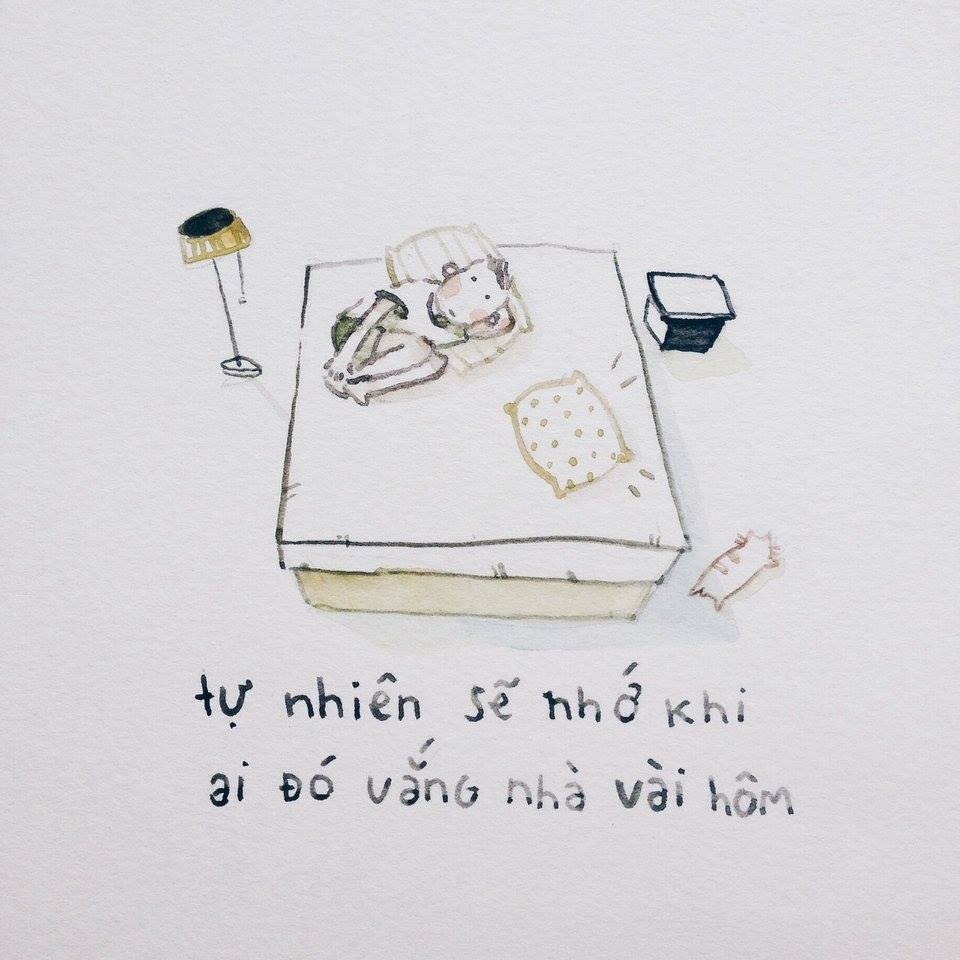 tự nhiên sẽ nhớ khi
ai đó vắng nhà vài hôm